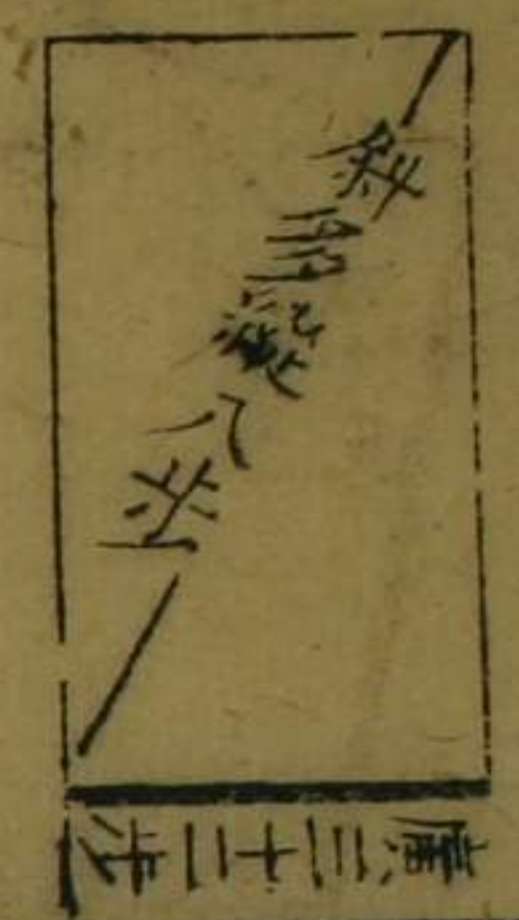 斜多縱八步
廣三十二步